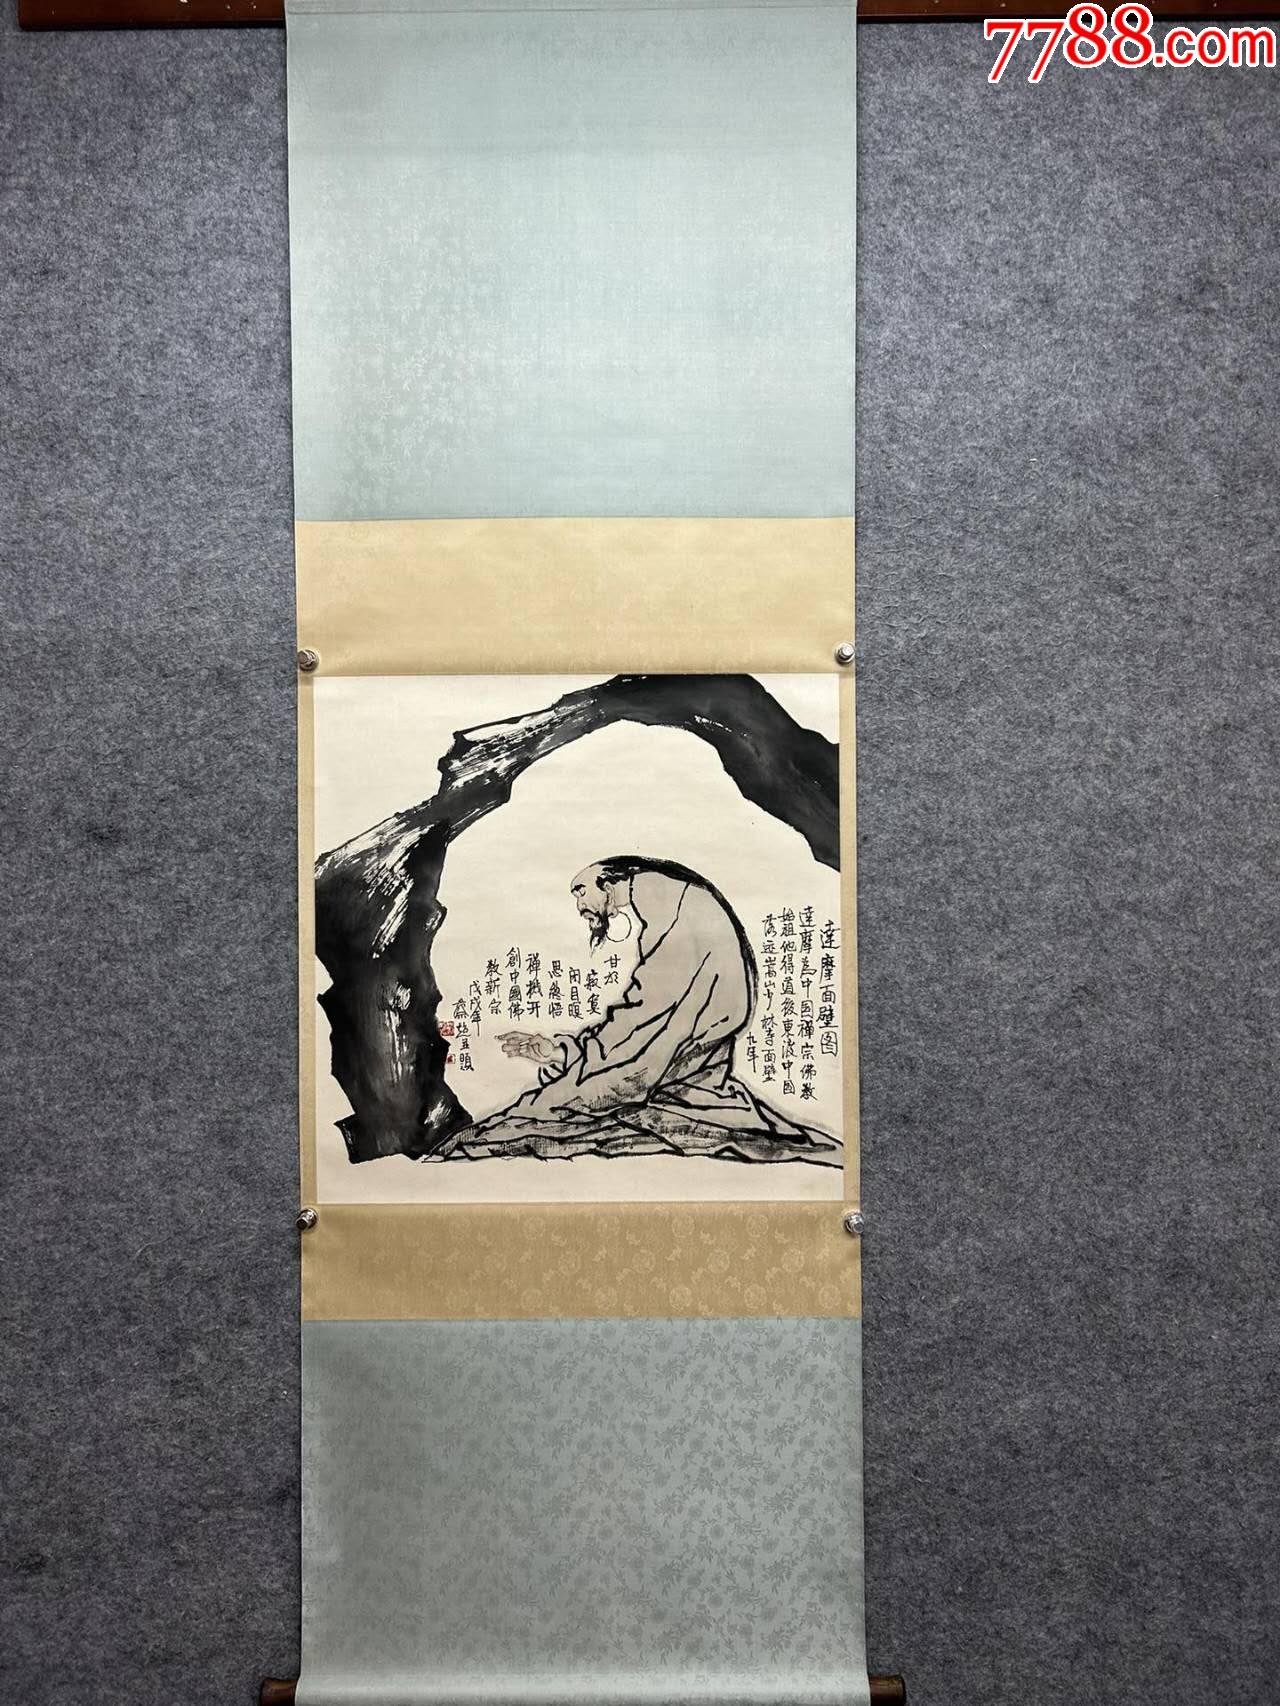 7788.com
達摩面壁图
達摩為中国禅宗佛教
始祖他得道後東渡中国
落迹嵩山少林寺面壁
九年
甘於
寂寞
闭目瞑
思悠悟
禅機开
創中國佛
教新宗
戊戌年